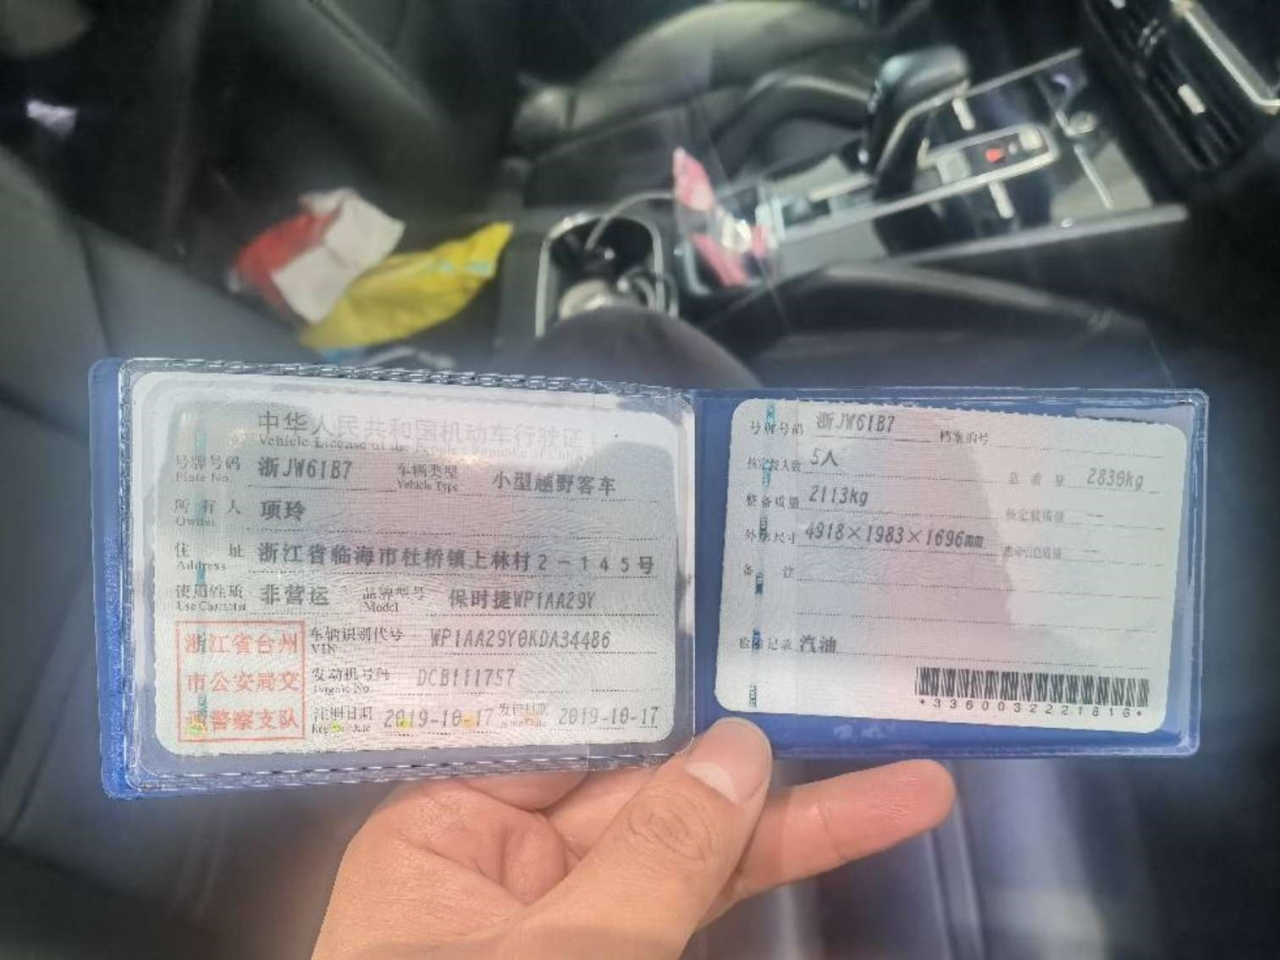 中华人民共和国机动车行驶证
Vehicle License of the People's Republic of China
号牌号码 Plate No. 浙JW61B7 车辆类型 Vehicle Type 小型越野客车
所有人 Owner 项玲
住址 Address 浙江省临海市杜桥镇上林村2-145号
使用性质 Use Character 非营运 品牌型号 Model 保时捷WP1AA29Y
浙江省台州
市公安局交
通警察支队
车辆识别代号 VIN WP1AA29Y0KDA34486
发动机号码 Engine No. DCB111757
注册日期 Register Date 2019-10-17 发证日期 Issue Date 2019-10-17
号牌号码 浙JW61B7 档案编号
核定载人数 5人 总质量 2830kg
整备质量 2113kg 核定载质量 --
外廓尺寸 4918×1983×1696mm 准牵引总质量 --
备注
检验记录 汽油
*3360032221816*